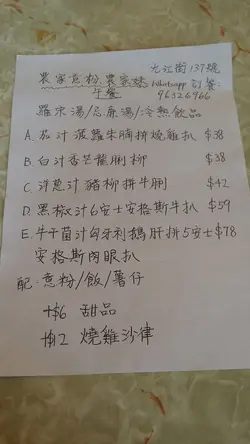 九江街137號
農家意粉,農家燴
午餐 Whatsapp 訂餐:
96326966
羅宋湯/忌廉湯/冷熱飲品
A. 茄汁菠蘿朱腩拼燒雞扒 $38
B. 白汁香芒龍脷柳 $38
C. 洋蔥汁豬柳拼牛脷 $42
D. 黑椒汁6安士安格斯牛扒 $59
E. 牛干菌汁匈牙利鵝肝拼5安士 $78
安格斯肉眼扒
配:意粉/飯/薯仔
+$6 甜品
+$12 燒雞沙律